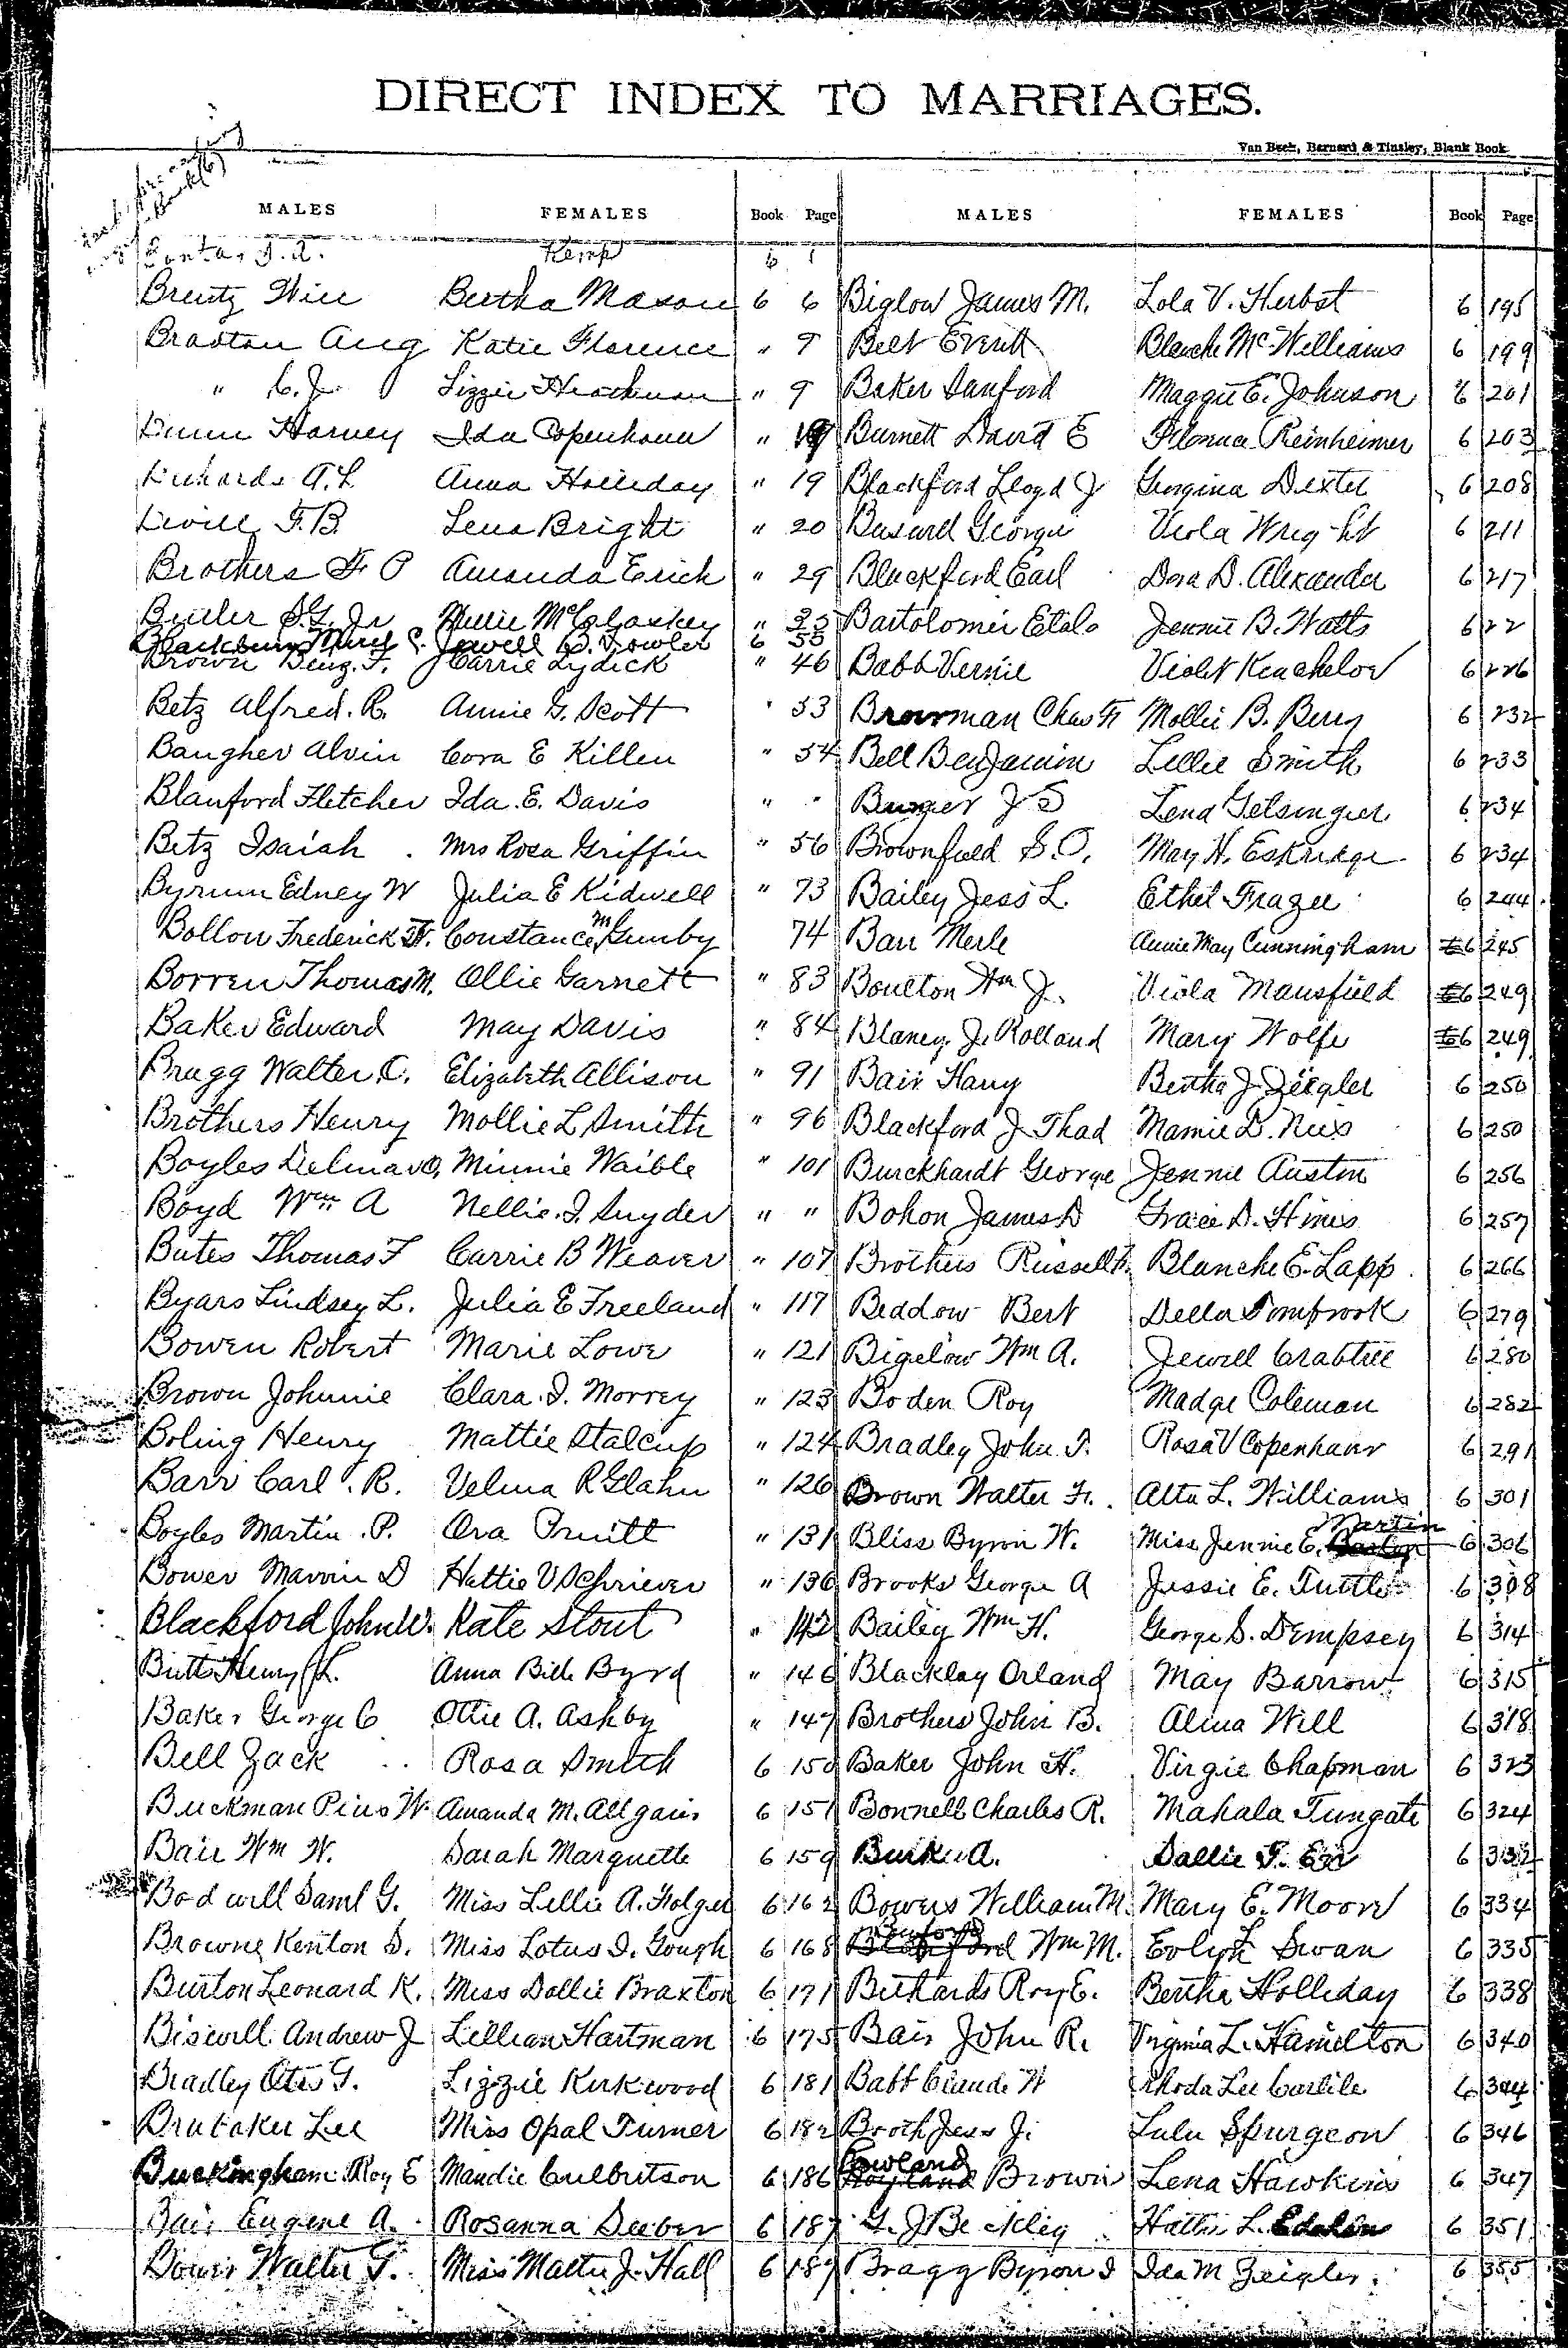 DIRECT INDEX TO MARRIAGES.
Van Beek, Barnard & Tinsley, Blank Book
MALES FEMALES Book Page MALES FEMALES Book Page
Kemp 6 1
Brentz Will Bertha Mason 6 6 Biglow James M. Lola V. Herbst 6 195
Braxton Aug Katie Florence " 9 Belt Everett Blanche McWilliams 6 199
" C. J. Lizzie " 9 Baker Sanford Maggie E. Johnson 6 201
Harvey Ida Copenhaver " Burnett David E Florence Reinheimer 6 203
A. L. Anna Holliday " 19 Blackford Lloyd J Georgina Dexter 6 208
F. B. Lena Bright " 20 Busard George Viola Wright 6 211
Brothers F P Amanda Erich " 29 Blackford Earl Dora D. Alexander 6 217
Butler S. G. Jr Nellie McCloskey " 35 Bartolomei Etalo Jennie B. Watts 6 22
Blackburn C. Jewell B. Fowler 6 35
Brown Benj. F. Carrie Lydick " 46 Babb Vernie Violet Kincheloe 6 226
Betz Alfred. R. Annie G. Scott " 53 Browman Chas F Mollie B. Berry 6 232
Baugher Alvin Cora E Killen " 54 Bell Benjamin Lillie Smith 6 233
Blanford Fletcher Ida. E. Davis " " Burger J S Lena Gelsinger 6 234
Betz Isaiah . Mrs Rosa Griffin " 56 Brownfield S. O. May H. Eskridge 6 234
Byrum Edney W Julia E Kidwell " 73 Bailey Jess L. Ethel Frazee 6 244
Bollow Frederick W. Constance M Gunby 74 Barr Merle Annie May Cunningham 6 245
Borren Thomas M. Ollie Garnett " 83 Boulton Wm J. Viola Mansfield 6 249
Baker Edward May Davis " 84 Blaney J. Rolland Mary Wolfe 6 249
Bragg Walter C. Elizabeth Allison " 91 Bair Harry Bertha J. Zeigler 6 250
Brothers Henry Mollie L Smith " 96 Blackford J Thad Mamie D. Nies 6 250
Boyles Delmar O, Minnie Waible " 101 Burckhardt George Jennie Austin 6 256
Boyd Wm A Nellie. I. Snyder " " Bohon James D Grace D. Hines 6 257
Bates Thomas F Carrie B Weaver " 107 Brothers Russell F. Blanche E. Lapp 6 266
Byars Lindsey L. Julia E Freeland " 117 Beddow Bert Della Sombrook 6 279
Bowen Robert Marie Lowe " 121 Bigelow Wm A. Jewell Crabtree 6 280
Brown Johnnie Clara. I. Morrey " 123 Boden Roy Madge Coleman 6 282
Boling Henry Mattie Stalcup " 124 Bradley John T. Rosa V Copenhaver 6 291
Barr Carl. R. Velma R Glahn " 126 Brown Walter F. Alta L. Williams 6 301
Boyles Martin. P. Ora Pruitt " 131 Bliss Byron W. Miss Jennie E. Martin 6 306
Bower Marvin D Hattie V Schriever " 136 Brooks George A Jessie E. Tuttle 6 308
Blackford John W. Kate Stout " 142 Bailey Wm H. George S. Dempsey 6 314
Butts Henry L. Anna Bell Byrd " 146 Blacklay Orland May Barrow 6 315
Baker George C Ottie A. Ashby " 147 Brothers John B. Alina Will 6 318
Bell Zack Rosa Smith 6 150 Baker John H. Virgie Chapman 6 323
Buckman Pius W. Amanda M. Allgaier 6 151 Bonnell Charles R. Mahala Tungate 6 324
Bair Wm W. Sarah Marquette 6 159 Burke A. Sallie F. 6 332
Bodwell Saml G. Miss Lillie A. Folger 6 162 Bowers William M. Mary E. Moore 6 334
Browne Kenton S. Miss Lotus I. Gough 6 168 Buford Wm M. Evelyn Swan 6 335
Burton Leonard K. Miss Dollie Braxton 6 171 Bethards Roy E. Bertha Holliday 6 338
Biswell Andrew J Lillian Hartman 6 175 Bair John R. Virginia L. Hamilton 6 340
Bradley Otis G. Lizzie Kirkwood 6 181 Babb Claude W Rhoda Lee Carlile 6 344
Brubaker Lee Miss Opal Turner 6 182 Booth Jess J. Lulu Spurgeon 6 346
Buckingham Roy E Maudie Culbertson 6 186 Rowland Brown Lena Hawkins 6 347
Bair Eugene A. Rosanna Deeber 6 187 G. J Beckley Hattie L. 6 351
Bower Walter T. Miss Matte J. Hall 6 187 Bragg Byron I Ida M Zeigler. 6 355